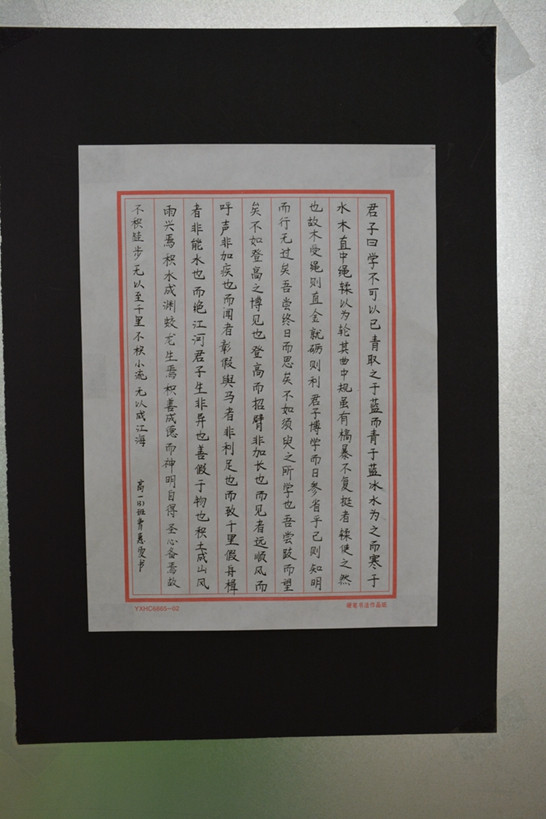 君子曰学不可以已青取之于蓝而青于蓝冰水为之而寒于
水木直中绳輮以为轮其曲中规虽有槁暴不复挺者輮使之然
也故木受绳则直金就砺则利君子博学而日参省乎己则知明
而行无过矣吾尝终日而思矣不如须臾之所学也吾尝跂而望
矣不如登高之博见也登高而招臂非加长也而见者远顺风而
呼声非加疾也而闻者彰假舆马者非利足也而致千里假舟楫
者非能水也而绝江河君子生非异也善假于物也积土成山风
雨兴焉积水成渊蛟龙生焉积善成德而神明自得圣心备焉故
不积跬步无以至千里不积小流无以成江海
高一(1)班曹 书
YXHC6665-02
硬笔书法作品纸